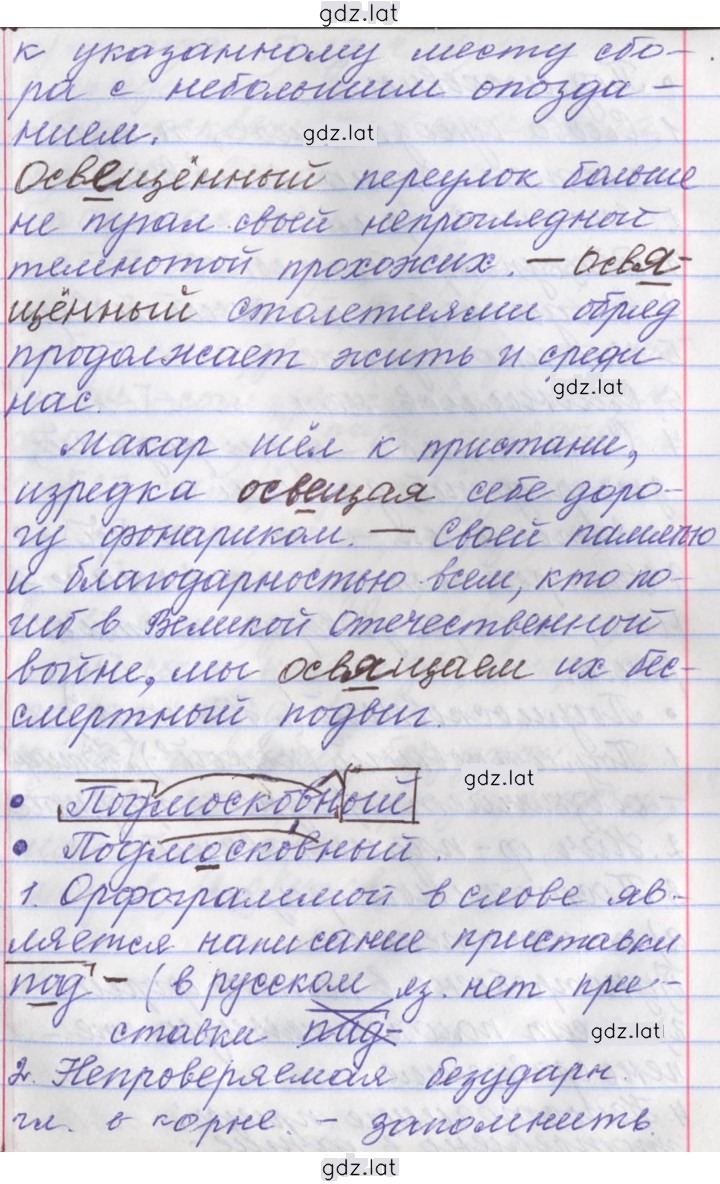 gdz.lat
к указанному месту сбо-
ра с небольшим опозда-
нием.
gdz.lat
Освещённый переулок больше
не пугал своей непроглядной
темнотой прохожих. — Освя-
щённый столетиями обряд
продолжает жить и среди
нас.
gdz.lat
Макар шёл к пристани,
изредка освещая себе доро-
гу фонариком. — Своей памятью
и благодарностью всем, кто по-
гиб в Великой Отечественной
войне, мы освящаем их бес-
смертный подвиг.
gdz.lat
• Подмосковный
• Подмосковный.
1. Орфограммой в слове яв-
ляется написание приставки
под - (в русском яз. нет при-
ставки пад-
gdz.lat
2. Непроверяемая безударн.
гл. в корне. - запомнить.
gdz.lat